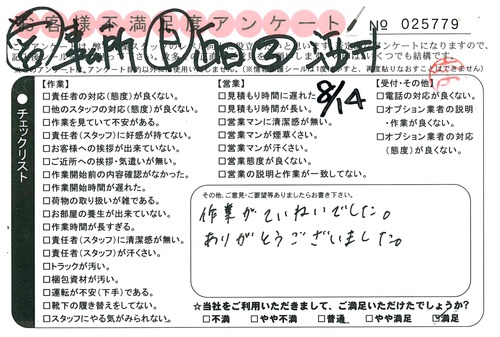 お客様不満足度アンケート
No 025779
8/14
チェックリスト
【作業】
□責任者の対応(態度)が良くない。
□他のスタッフの対応(態度)が良くない。
□作業を見ていて不安がある。
□責任者(スタッフ)に好感が持てない。
□お客様への挨拶が出来ていない。
□ご近所への挨拶・気遣いが無い。
□作業開始前の内容確認がなかった。
□作業開始時間が遅れた。
□荷物の取り扱いが雑である。
□お部屋の養生が出来ていない。
□作業時間が長すぎる。
□責任者(スタッフ)に清潔感が無い。
□責任者(スタッフ)が汗くさい。
□トラックが汚い。
□梱包資材が汚い。
□運転が不安(下手)である。
□靴下の履き替えをしてない。
□スタッフにやる気がみられない。
【営業】
□見積もり時間に遅れた
□見積もり時間が長い。
□営業マンに清潔感が無い。
□営業マンが煙草くさい。
□営業マンが汗くさい。
□営業態度が良くない。
□営業の説明と作業が一致してない。
【受付・その他】
□電話の対応が良くない。
□オプション業者の説明
・作業が良くない。
□オプション業者の対応
(態度)が良くない。
その他、ご意見・ご要望等ありましたらお書き下さい。
作業がていねいでした。
ありがとうございました。
☆当社をご利用いただきまして、ご満足いただけたでしょうか?
□不満 □やや不満 □普通 □やや満足 ☑満足